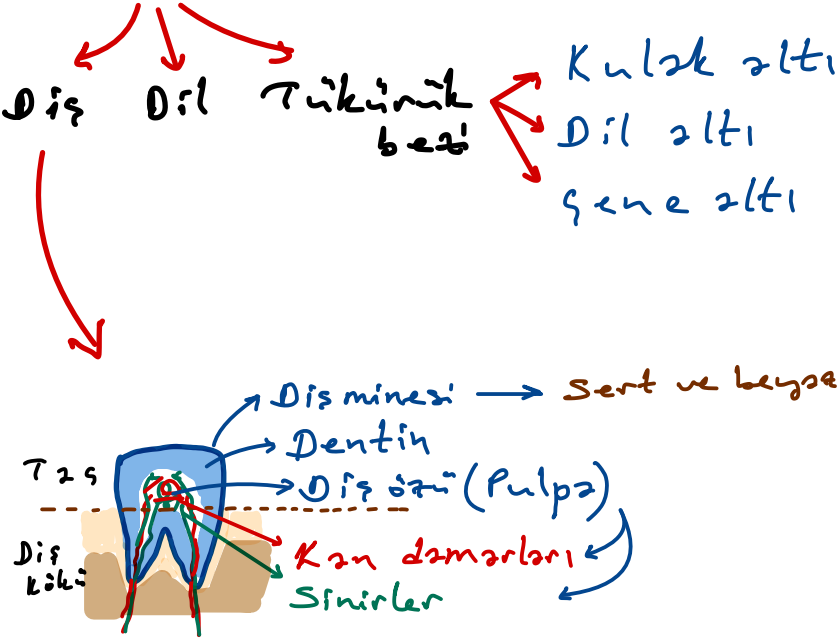 Diş Dil Tükürük bezi
Kulak altı
Dil altı
Çene altı
Diş minesi → Sert ve beyaz
Dentin
Taç
Diş özü (Pulpa)
Diş kökü
Kan damarları
Sinirler